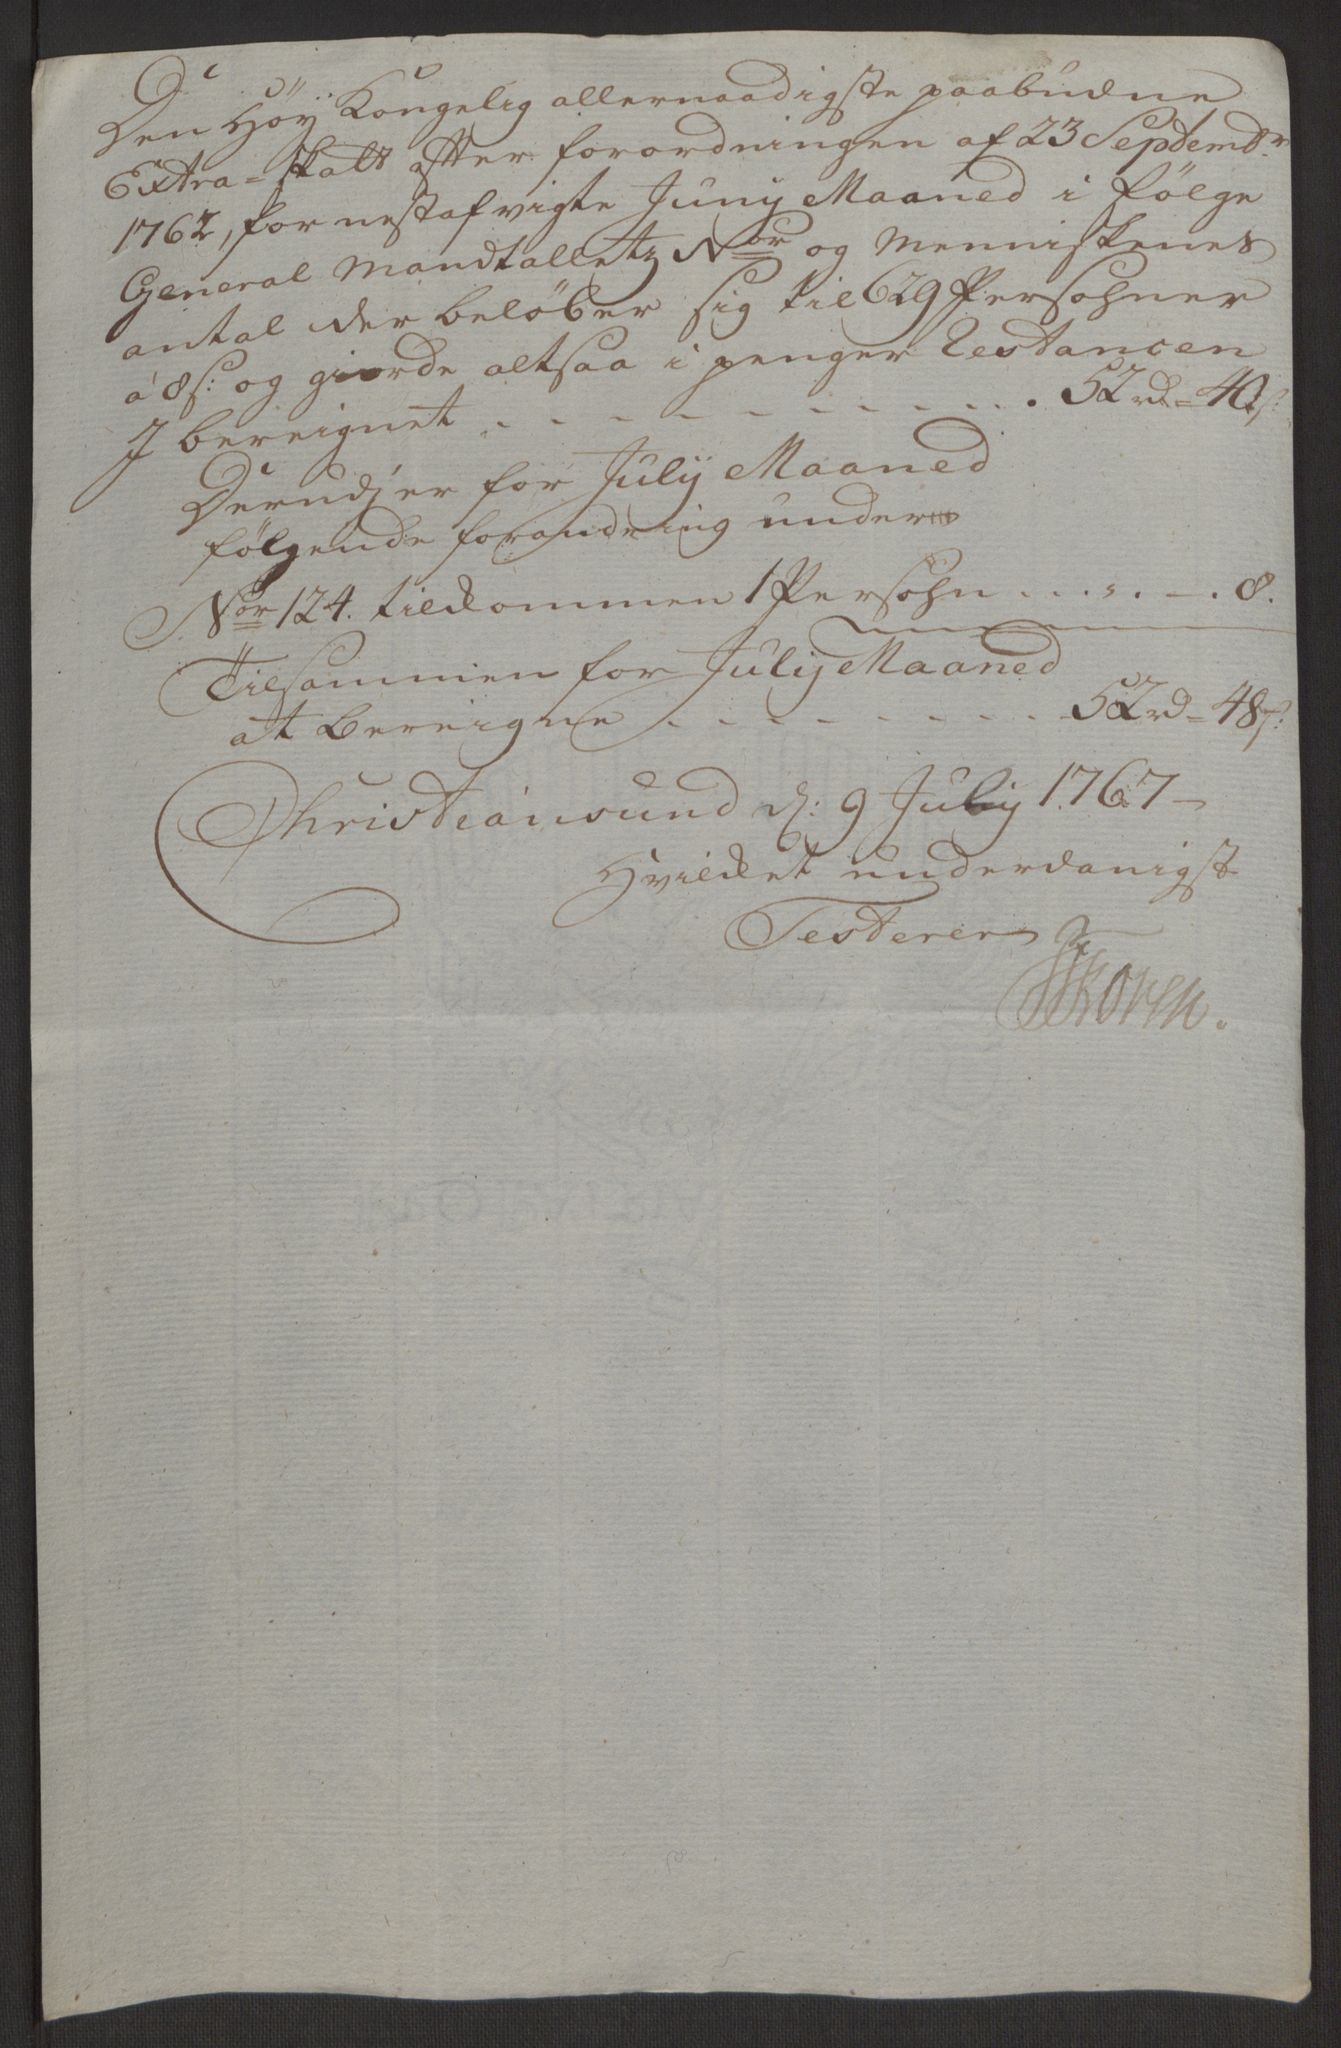 Den Höÿ Kongelig allernaadigste paabudne
Extra-Skatt efter forordningen af 23 Septembr
1762, for nestafvigte Junÿ Maaned i følge
General Mandtalletz Nor og Menniskenes
antal der beløber sig til 629 Persohner
á 8 s: og giorde altsaa i penger
J bereignet . . . . . . . . . . 52 rd = 40 s:
for Julÿ Maaned
følgende forandring under
Nor 124. tilkommen 1 Persohn . . . . . 8.
Tilsammen for Julÿ Maaned
at bereigne . . . . . . . . . 52 rd = 48 s:
Christiansund d: 9 Julÿ 1767
Hvilket underdanigst
Testerer